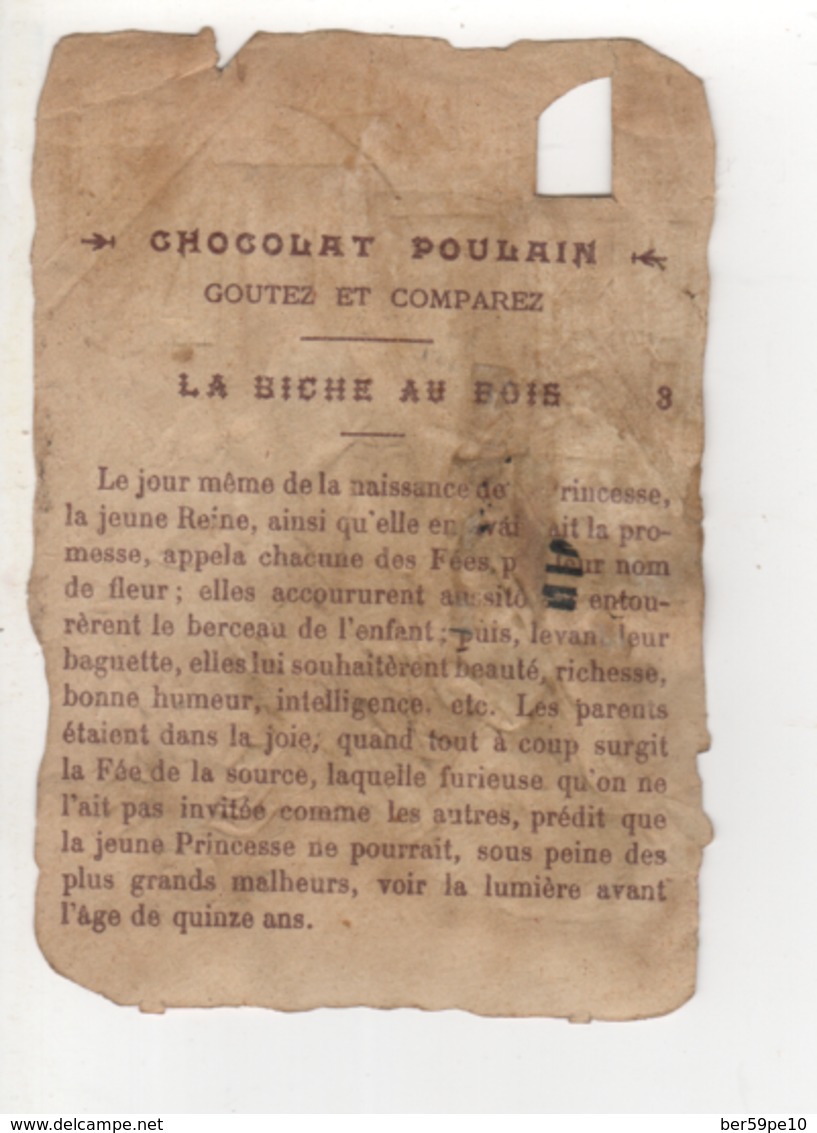 CHOCOLAT POULAIN
GOUTEZ ET COMPAREZ
LA BICHE AU BOIS 3
Le jour même de la naissance de rincesse,
la jeune Reine, ainsi qu'elle en avait fait la pro-
messe, appela chacune des Fées, par leur nom
de fleur ; elles accoururent aussitôt et entou-
rèrent le berceau de l'enfant ; puis, levant leur
baguette, elles lui souhaitèrent beauté, richesse,
bonne humeur, intelligence, etc. Les parents
étaient dans la joie, quand tout à coup surgit
la Fée de la source, laquelle furieuse qu'on ne
l'ait pas invitée comme les autres, prédit que
la jeune Princesse ne pourrait, sous peine des
plus grands malheurs, voir la lumière avant
l'âge de quinze ans.
delcampe.net
ber59pe10